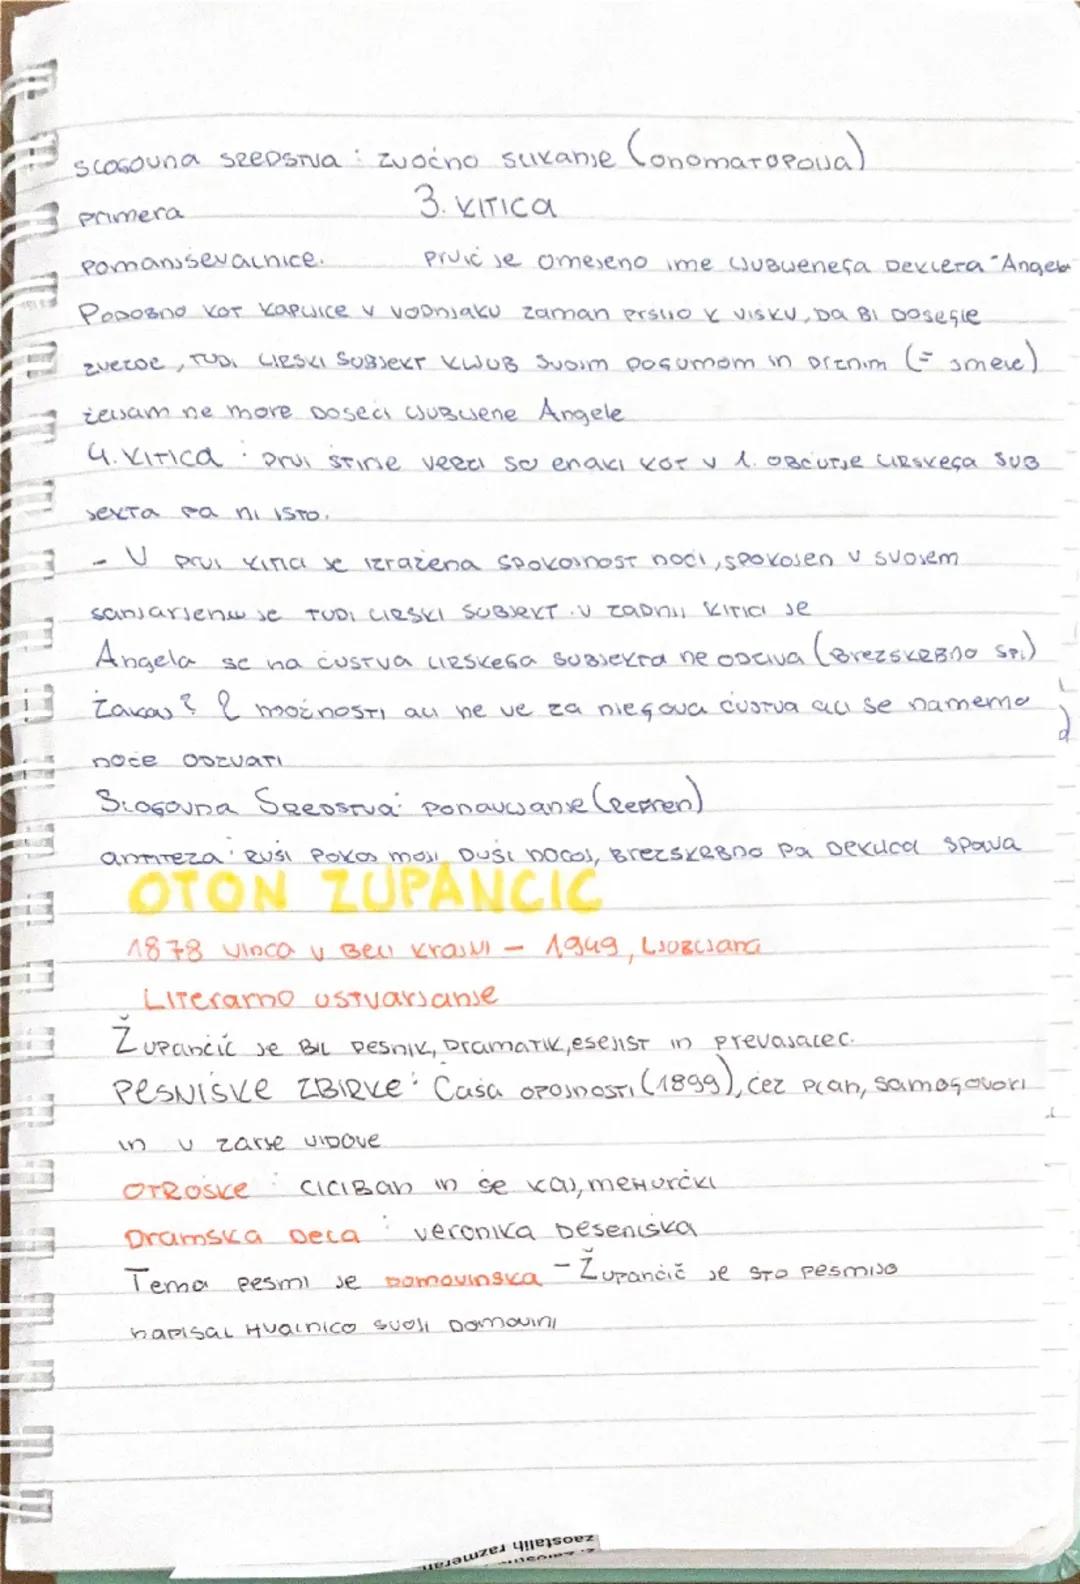 SLOGOVNA SREDSTVA : ZVOČNO SLIKANJE (ONOMATOPOIJA)
3. KITICA
primera
pomanjševalnice.
Prvič je omejeno ime ljubljenega dekleta "Angela
Podobno kot kapljice v vodnjaku zaman pršijo k višku, da bi dosegle
zvezde, tudi lirski subjekt kljub svojim pogumom in drznim (= smele)
željam ne more doseči ljubljene Angele
4. KITICA : prvi štirje verzi so enaki kot v 1. občutje lirskega sub
jekta pa ni isto.
- V prvi kitici je izražena spokojnost noči, spokojen v svojem
sanjarjenju je tudi lirski subjekt. V zadnji kitici je
Angela se na čustva lirskega subjekta ne odziva (brezskrbno spi)
Zakaj? 2 možnosti ali ne ve za njegova čustva ali se namerno
noče odzvati
Slogovna sredstva: ponavljanje (Refren)
antiteza : ruši pokoj moji duši nocoj, brezskrbno pa dekлica spava
OTON ZUPANČIČ
1878 Vinca v Beli Krajni - 1949, Ljubljana
Literarno ustvarjanje
Župančič je bil pesnik, dramatik, esejist in prevajalec.
PESNIŠKE ZBIRKE : Čaša opojnosti (1899), čez plan, samogovori
in v zarje vidove
OTROŠKE : CICIBAN in še kaj, mehurčki
Dramska dela : veronika Deseniška
Tema pesmi je domovinska - Župančič je s to pesmijo
napisal hvalnico svoji domovini
zaostalih razmerah